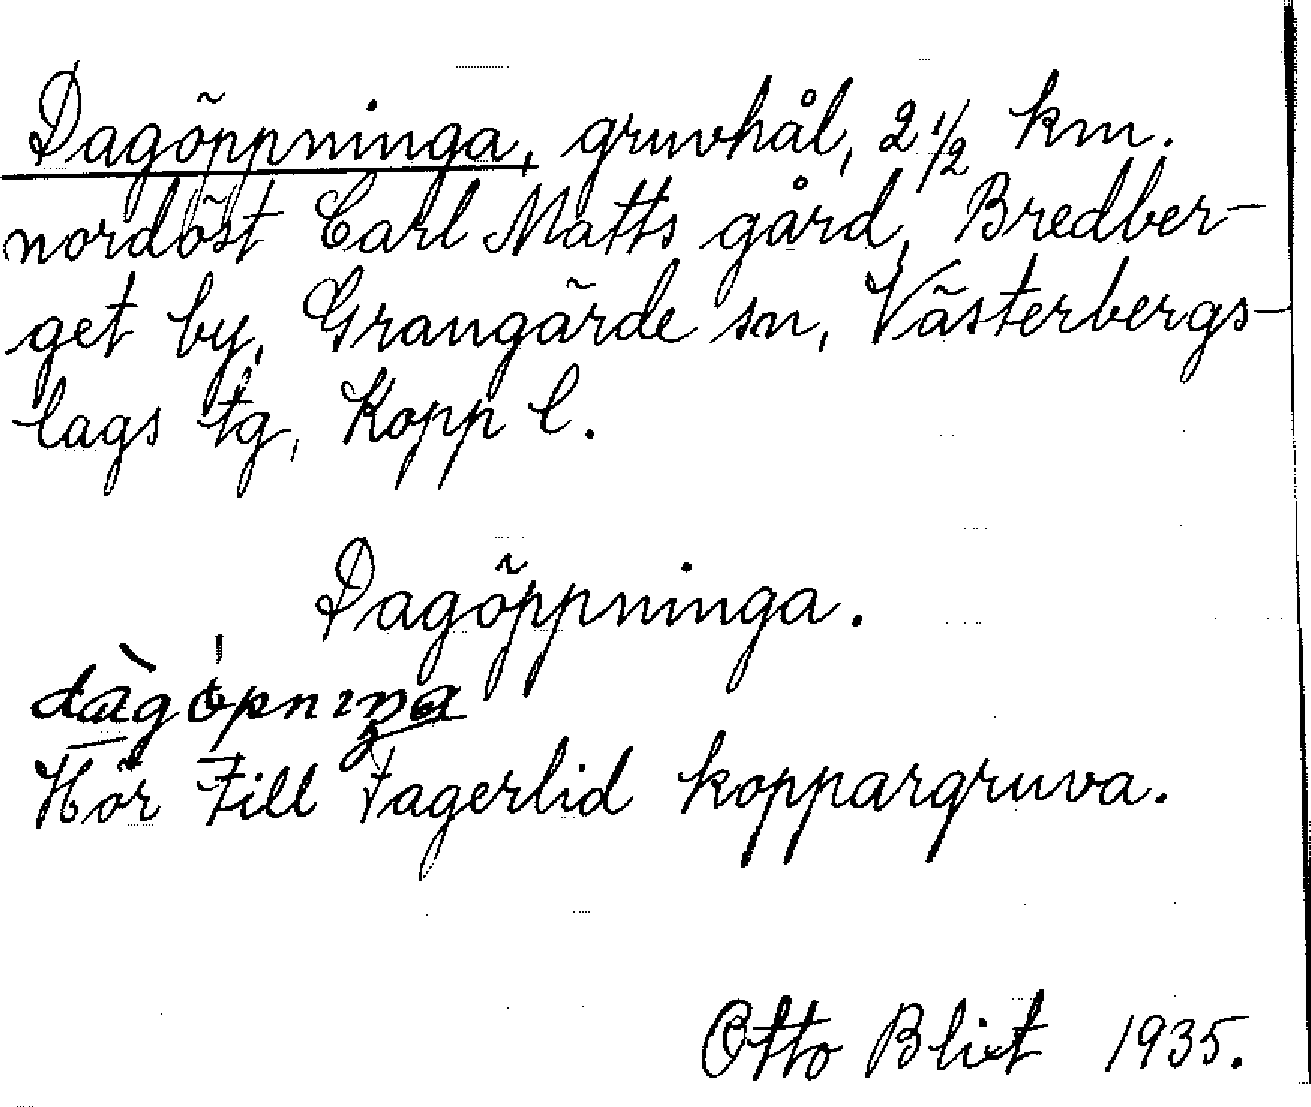 Dagöppninga, gruvhål, 2 1/2 km.
nordöst Carl Matts gård, Bredber-
get by, Grangärde sn, Västerbergs-
lags tg, Kopp l.
Dagöppninga.
dàgöpniŋa
Hör till Fagerlid koppargruva.
Otto Blixt 1935.